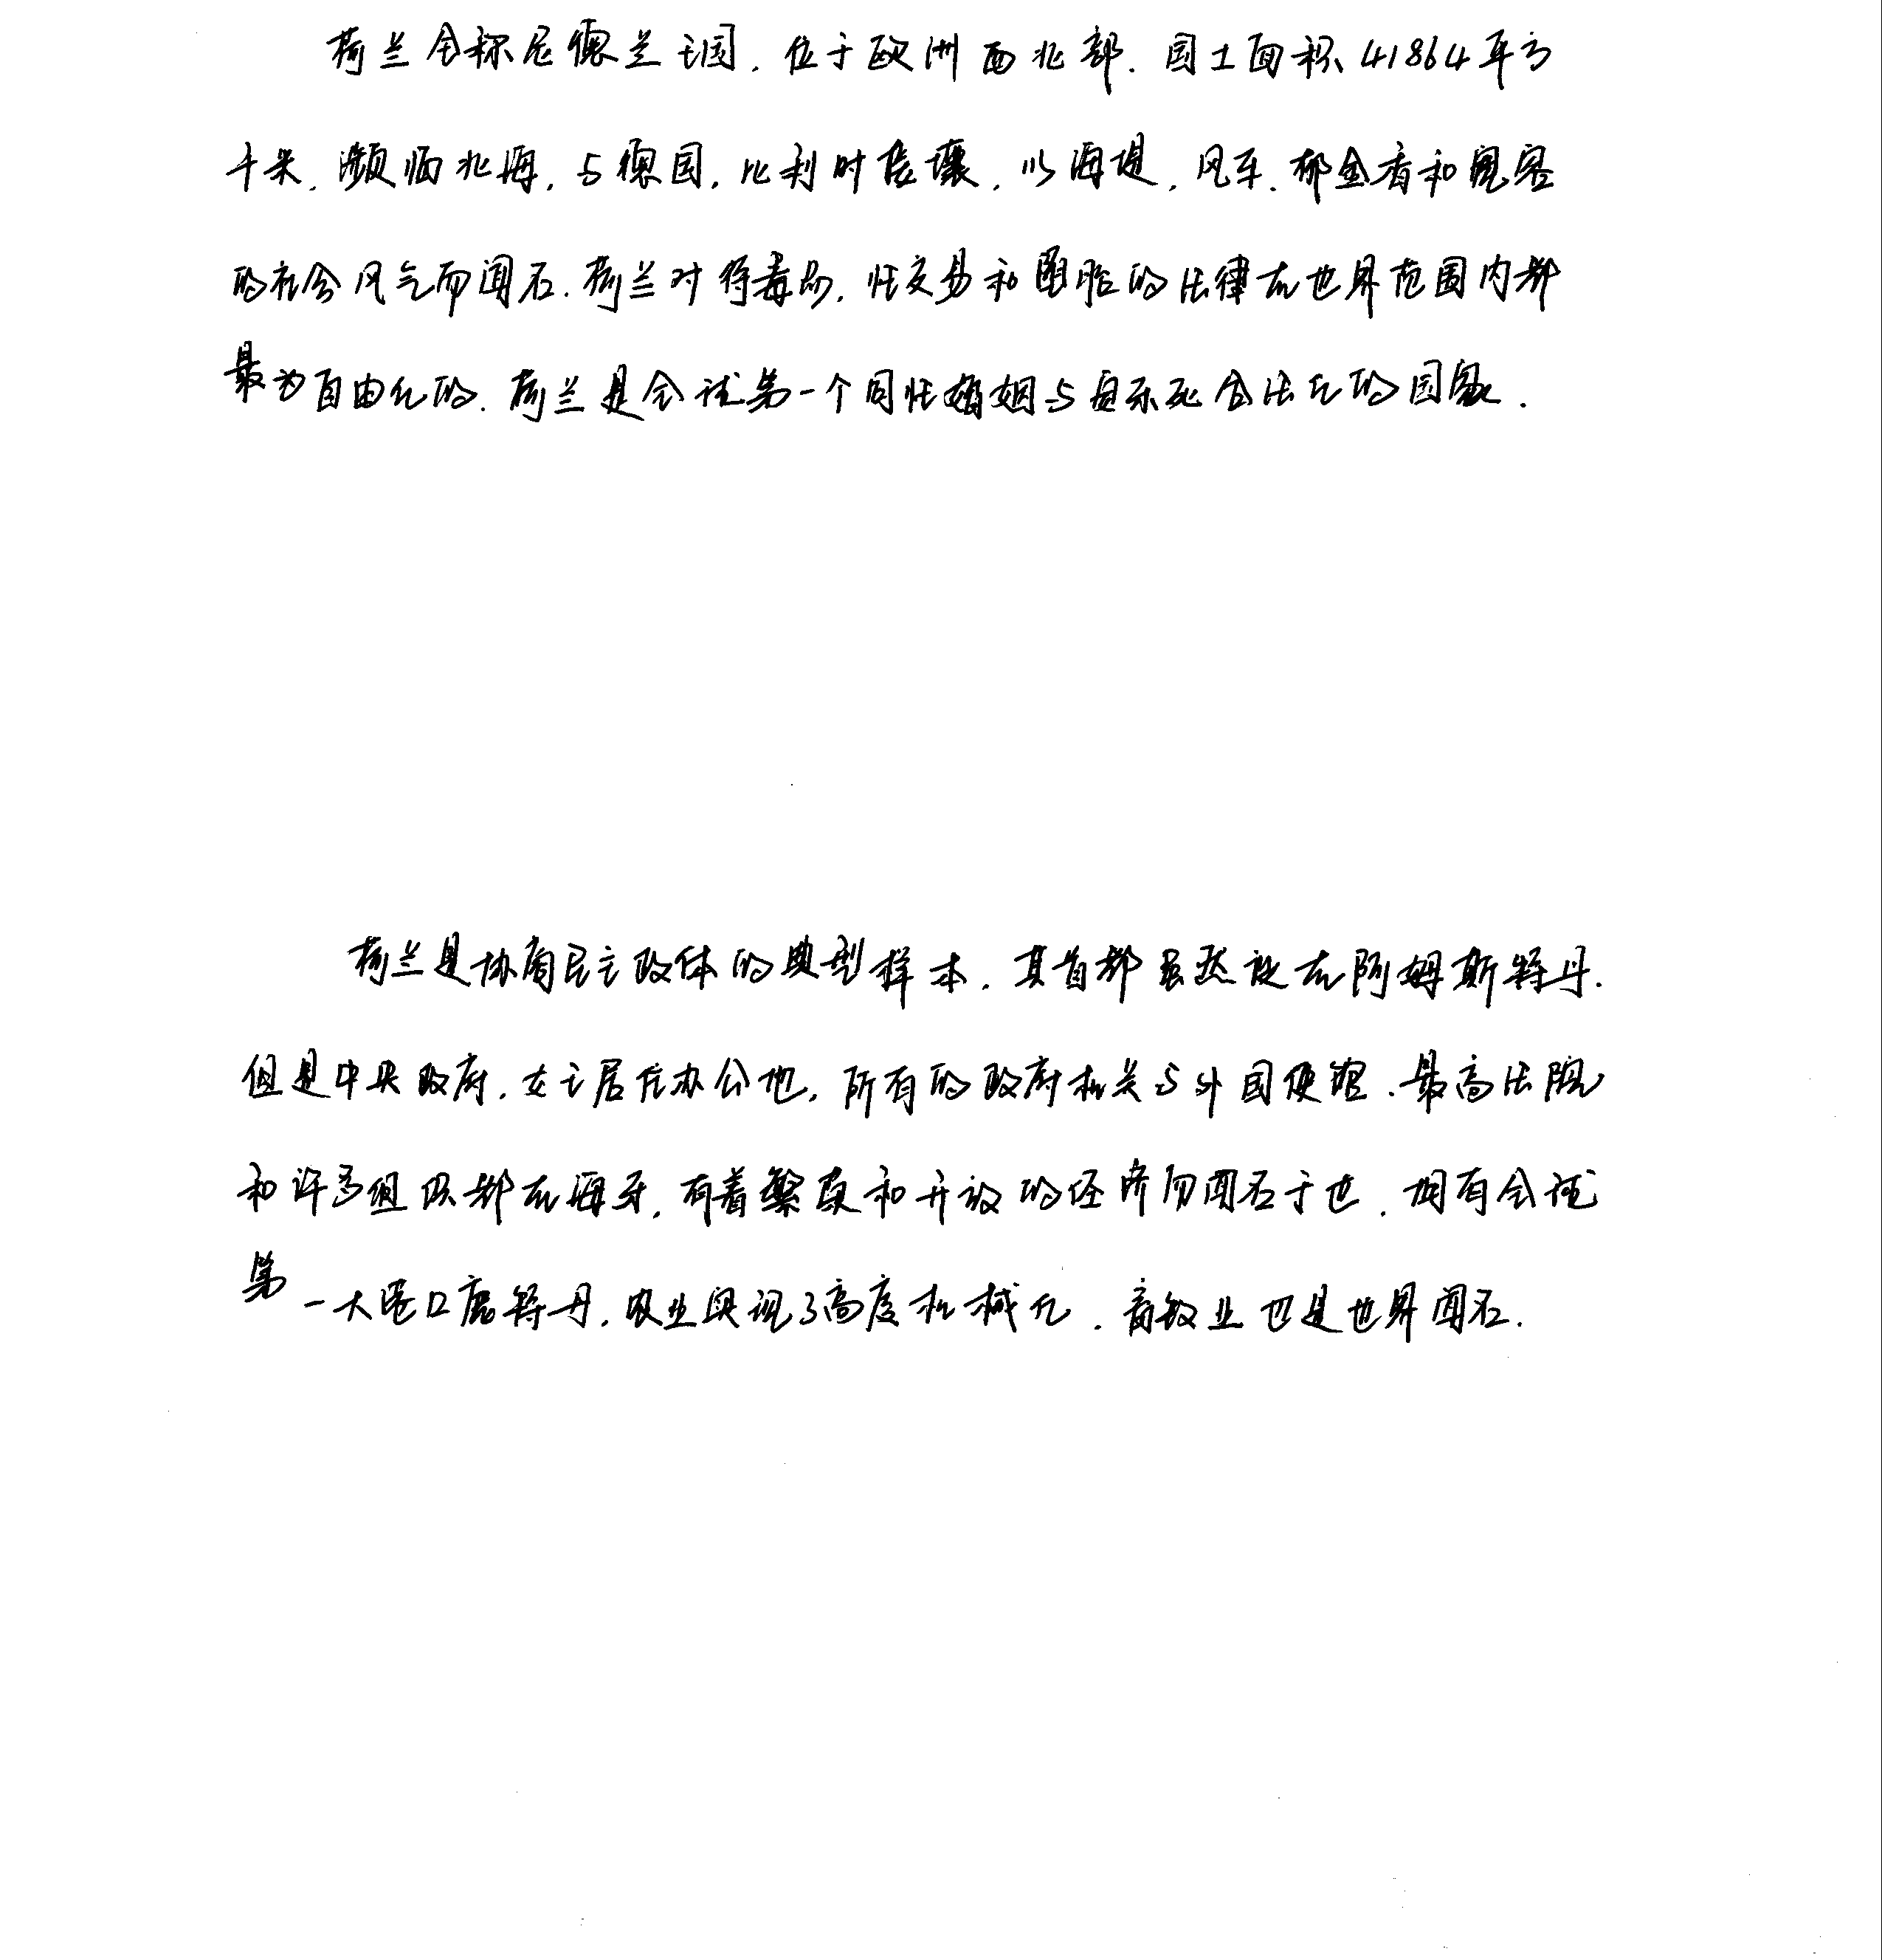 荷兰全称尼德兰王国，位于欧洲西北部．国土面积41864平方
千米，濒临北海，与德国，比利时接壤，以海堤，风车，郁金香和宽容
的社会风气而闻名．荷兰对待毒品，性交易和堕胎的法律在世界范围内都
最为自由化的．荷兰是全球第一个同性婚姻与安乐死合法化的国家．
荷兰是协商民主政体的典型样本，其首都虽然设在阿姆斯特丹．
但是中央政府，女王居住办公地，所有的政府机关与外国使馆．最高法院
和许多组织都在海牙，有着繁荣和开放的经济而闻名于世，拥有全球
第一大港口鹿特丹，农业实现了高度机械化．畜牧业也是世界闻名．